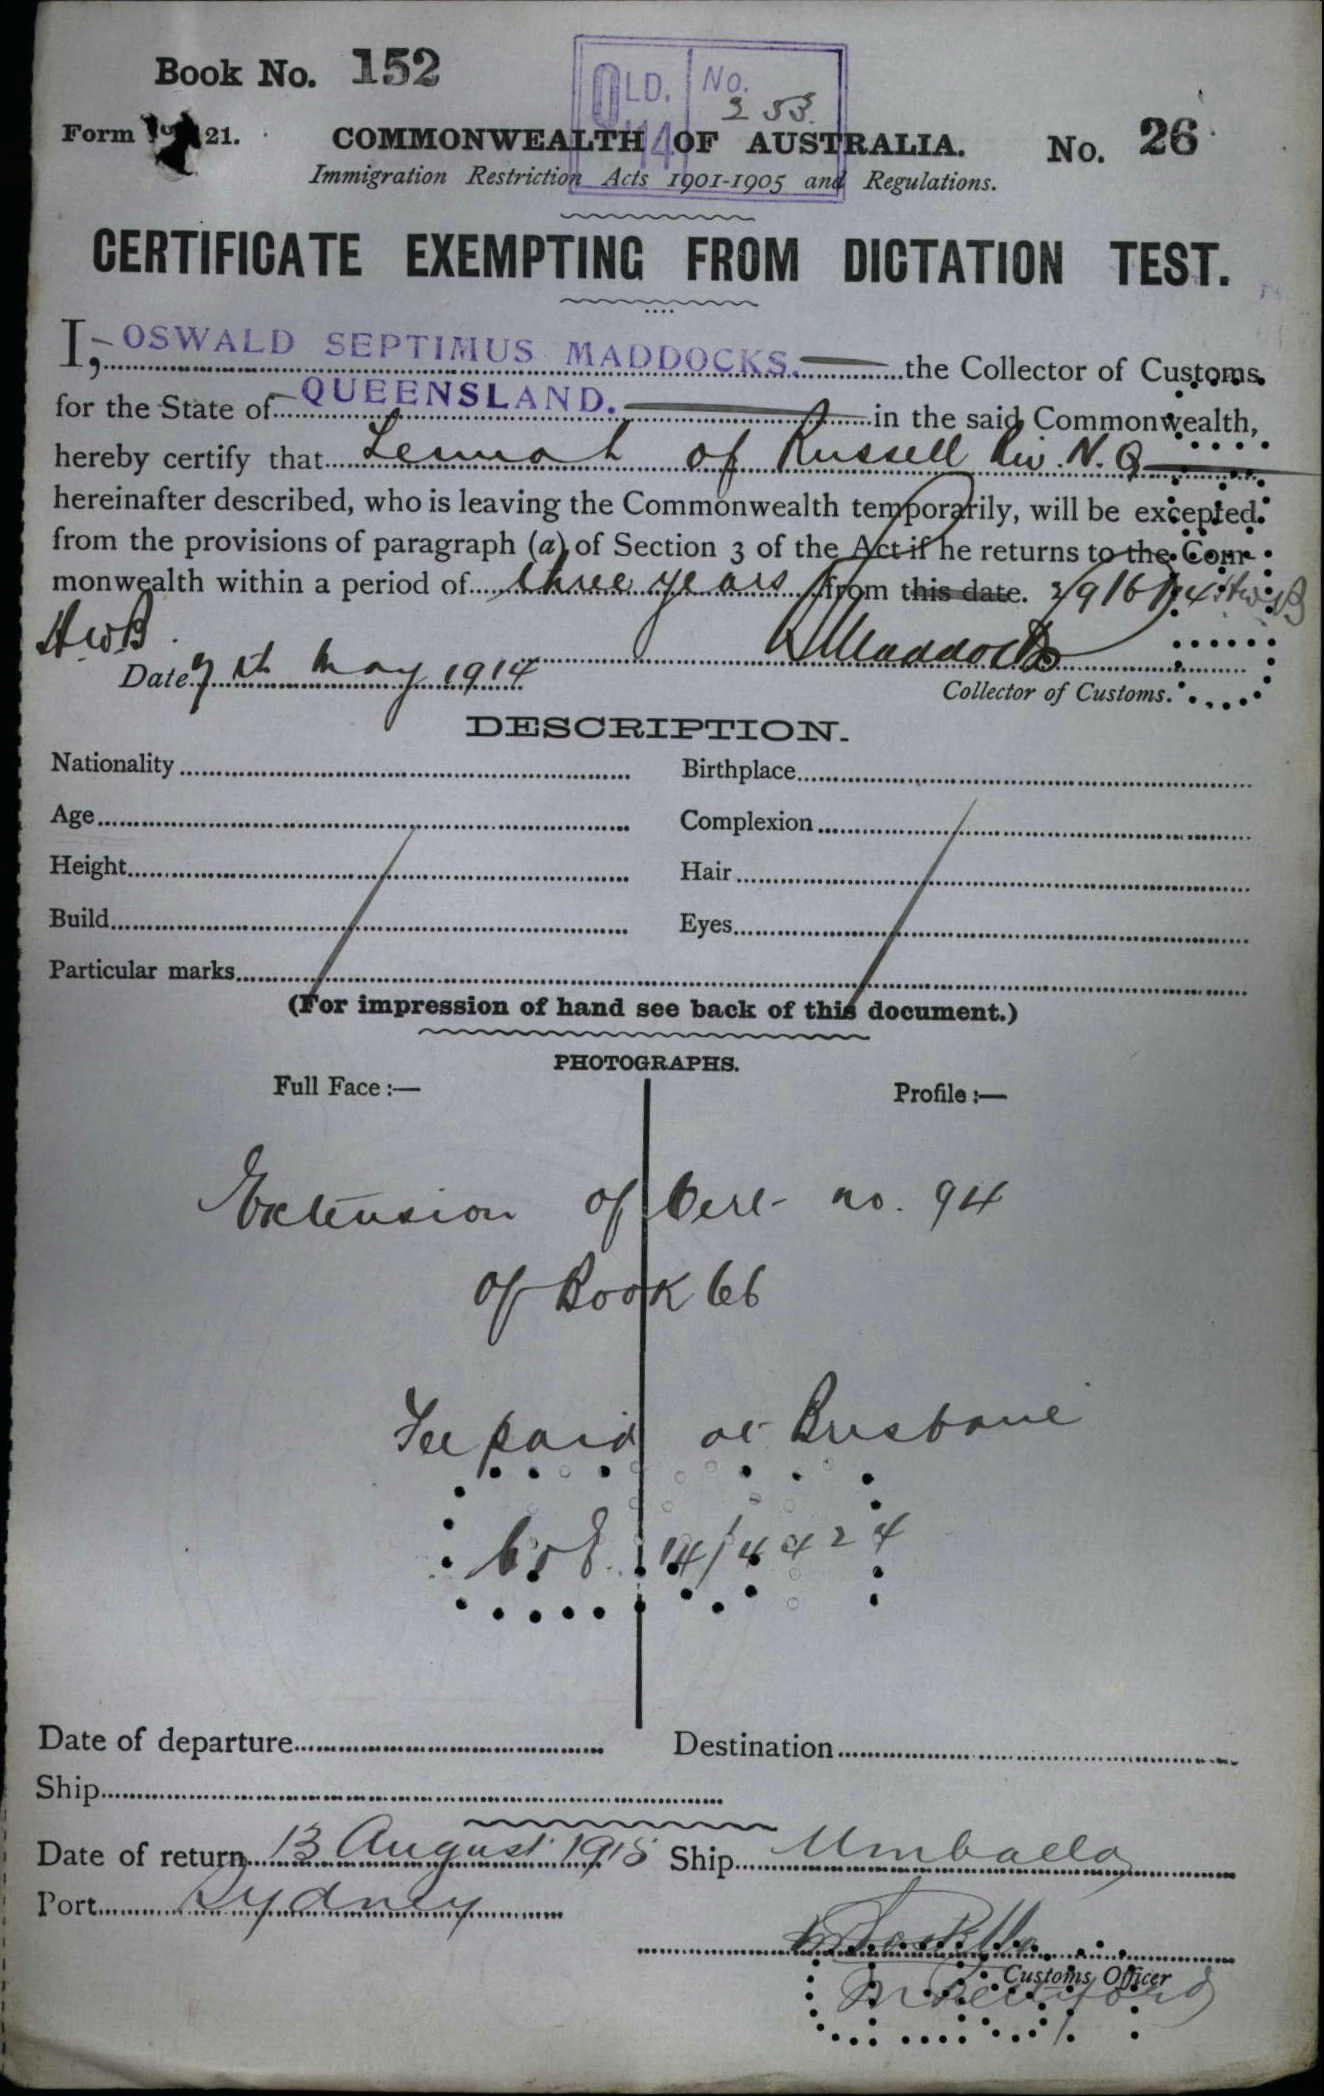 Book No. 152
QLD. No.
253.
14
Form 21.
COMMONWEALTH OF AUSTRALIA.
No. 26
Immigration Restriction Acts 1901-1905 and Regulations.
CERTIFICATE EXEMPTING FROM DICTATION TEST.
I, OSWALD SEPTIMUS MADDOCKS, the Collector of Customs
for the State of QUEENSLAND. in the said Commonwealth,
hereby certify that Lennah of Russell Riv. N. Q
hereinafter described, who is leaving the Commonwealth temporarily, will be excepted
from the provisions of paragraph (a) of Section 3 of the Act if he returns to the Com-
monwealth within a period of three years from this date. 29/6/14 HWB
HWB
Maddocks
Date 7th May 1914
Collector of Customs.
DESCRIPTION.
Nationality
Birthplace
Age
Complexion
Height
Hair
Build
Eyes
Particular marks
(For impression of hand see back of this document.)
PHOTOGRAPHS.
Full Face :—
Profile :—
Extension of Cert no. 94
of Book 66
Fee paid at Brisbane
14/4424
Date of departure
Destination
Ship
Date of return 13 August 1915 Ship Umballa
Port Sydney
Customs Officer